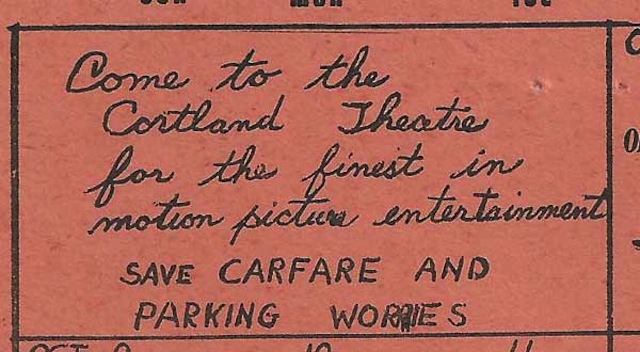 Come to the
Cortland Theatre
for the finest in
motion picture entertainment
SAVE CARFARE AND
PARKING WORRIES